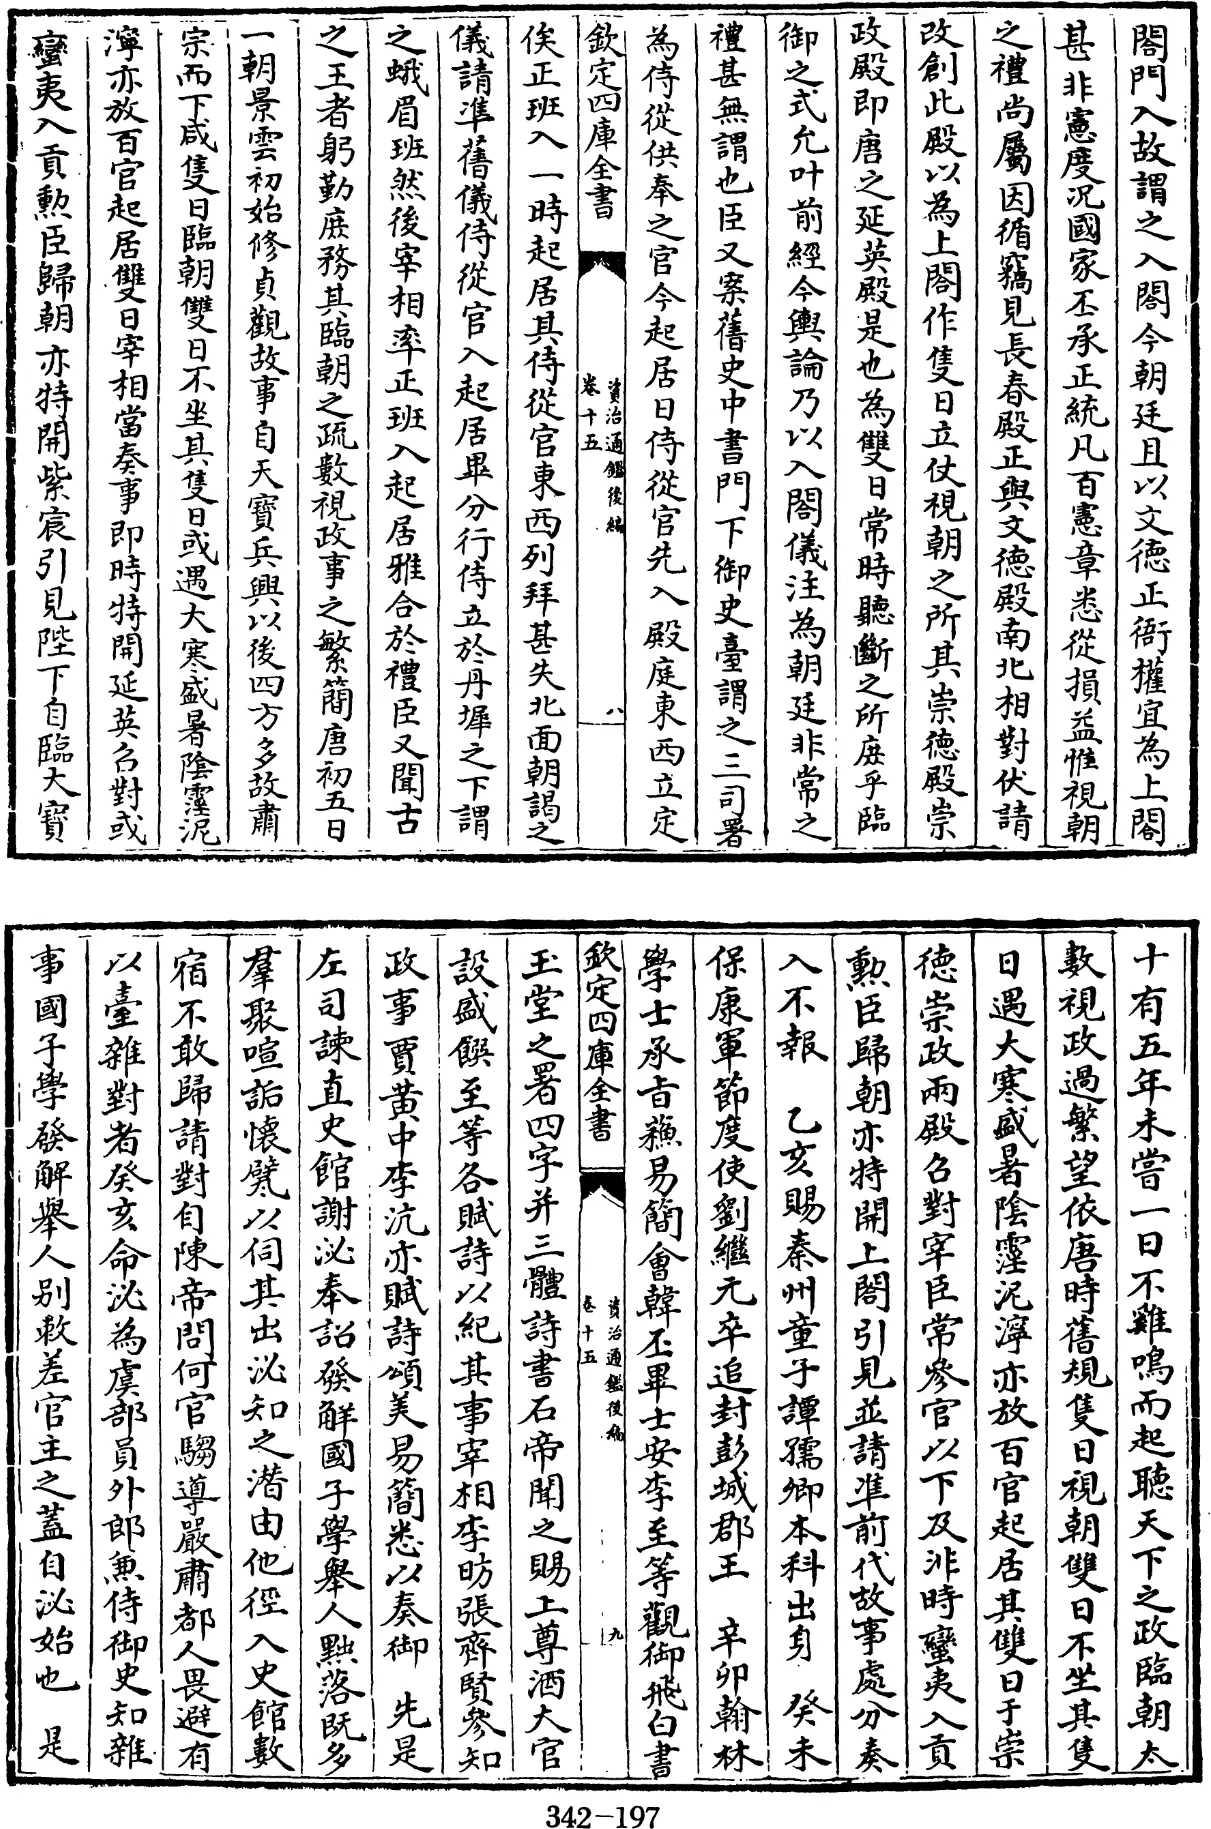 閤門入故謂之入閤今朝廷且以文徳正衙權宜為上閤
甚非憲度況國家丕承正統凡百憲章悉從損益惟視朝
之禮尚屬因循竊見長春殿正與文徳殿南北相對伏請
改創此殿以為上閤作隻日立仗視朝之所其崇徳殿崇
政殿即唐之延英殿是也為雙日常時聽斷之所庶乎臨
御之式允叶前經今輿論乃以入閤儀注為朝廷非常之
禮甚無謂也臣又案舊史中書門下御史臺謂之三司署
為侍從供奉之官今起居日侍從官先入殿庭東西立定
欽定四庫全書
資治通鑑後編
卷十五
八
俟正班入一時起居其侍從官東西列拜甚失北面朝謁之
儀請準舊儀侍從官入起居畢分行侍立於丹墀之下謂
之蛾眉班然後宰相率正班入起居雅合於禮臣又聞古
之王者躬勤庶務其臨朝之疏數視政事之繁簡唐初五日
一朝景雲初始修貞觀故事自天寳兵興以後四方多故肅
宗而下咸隻日臨朝雙日不坐其隻日或遇大寒盛暑陰霪泥
濘亦放百官起居雙日宰相當奏事即時特開延英召對或
蠻夷入貢勲臣歸朝亦特開紫宸引見陛下自臨大寳
十有五年未嘗一日不雞鳴而起聴天下之政臨朝太
數視政過繁望依唐時舊規隻日視朝雙日不坐其隻
日遇大寒盛暑陰霪泥濘亦放百官起居其雙日于崇
徳崇政兩殿召對宰臣常參官以下及非時蠻夷入貢
勲臣歸朝亦特開上閤引見並請準前代故事處分奏
入不報　乙亥賜秦州童子譚孺卿本科出身　癸未
保康軍節度使劉繼元卒追封彭城郡王　辛卯翰林
學士承旨蘇易簡會韓丕畢士安李至等觀御飛白書
欽定四庫全書
資治通鑑後編
卷十五
九
玉堂之署四字并三體詩書石帝聞之賜上尊酒大官
設盛饌至等各賦詩以紀其事宰相李昉張齊賢參知
政事賈黄中李沆亦賦詩頌美易簡悉以奏御　先是
左司諫直史館謝泌奉詔發解國子學舉人黜落既多
羣聚喧詬懷甓以伺其出泌知之潛由他徑入史館數
宿不敢歸請對自陳帝問何官騶導嚴肅都人畏避有
以臺雜對者癸亥命泌為虞部員外郎兼侍御史知雜
事國子學發解舉人別敕差官主之蓋自泌始也　是
342-197